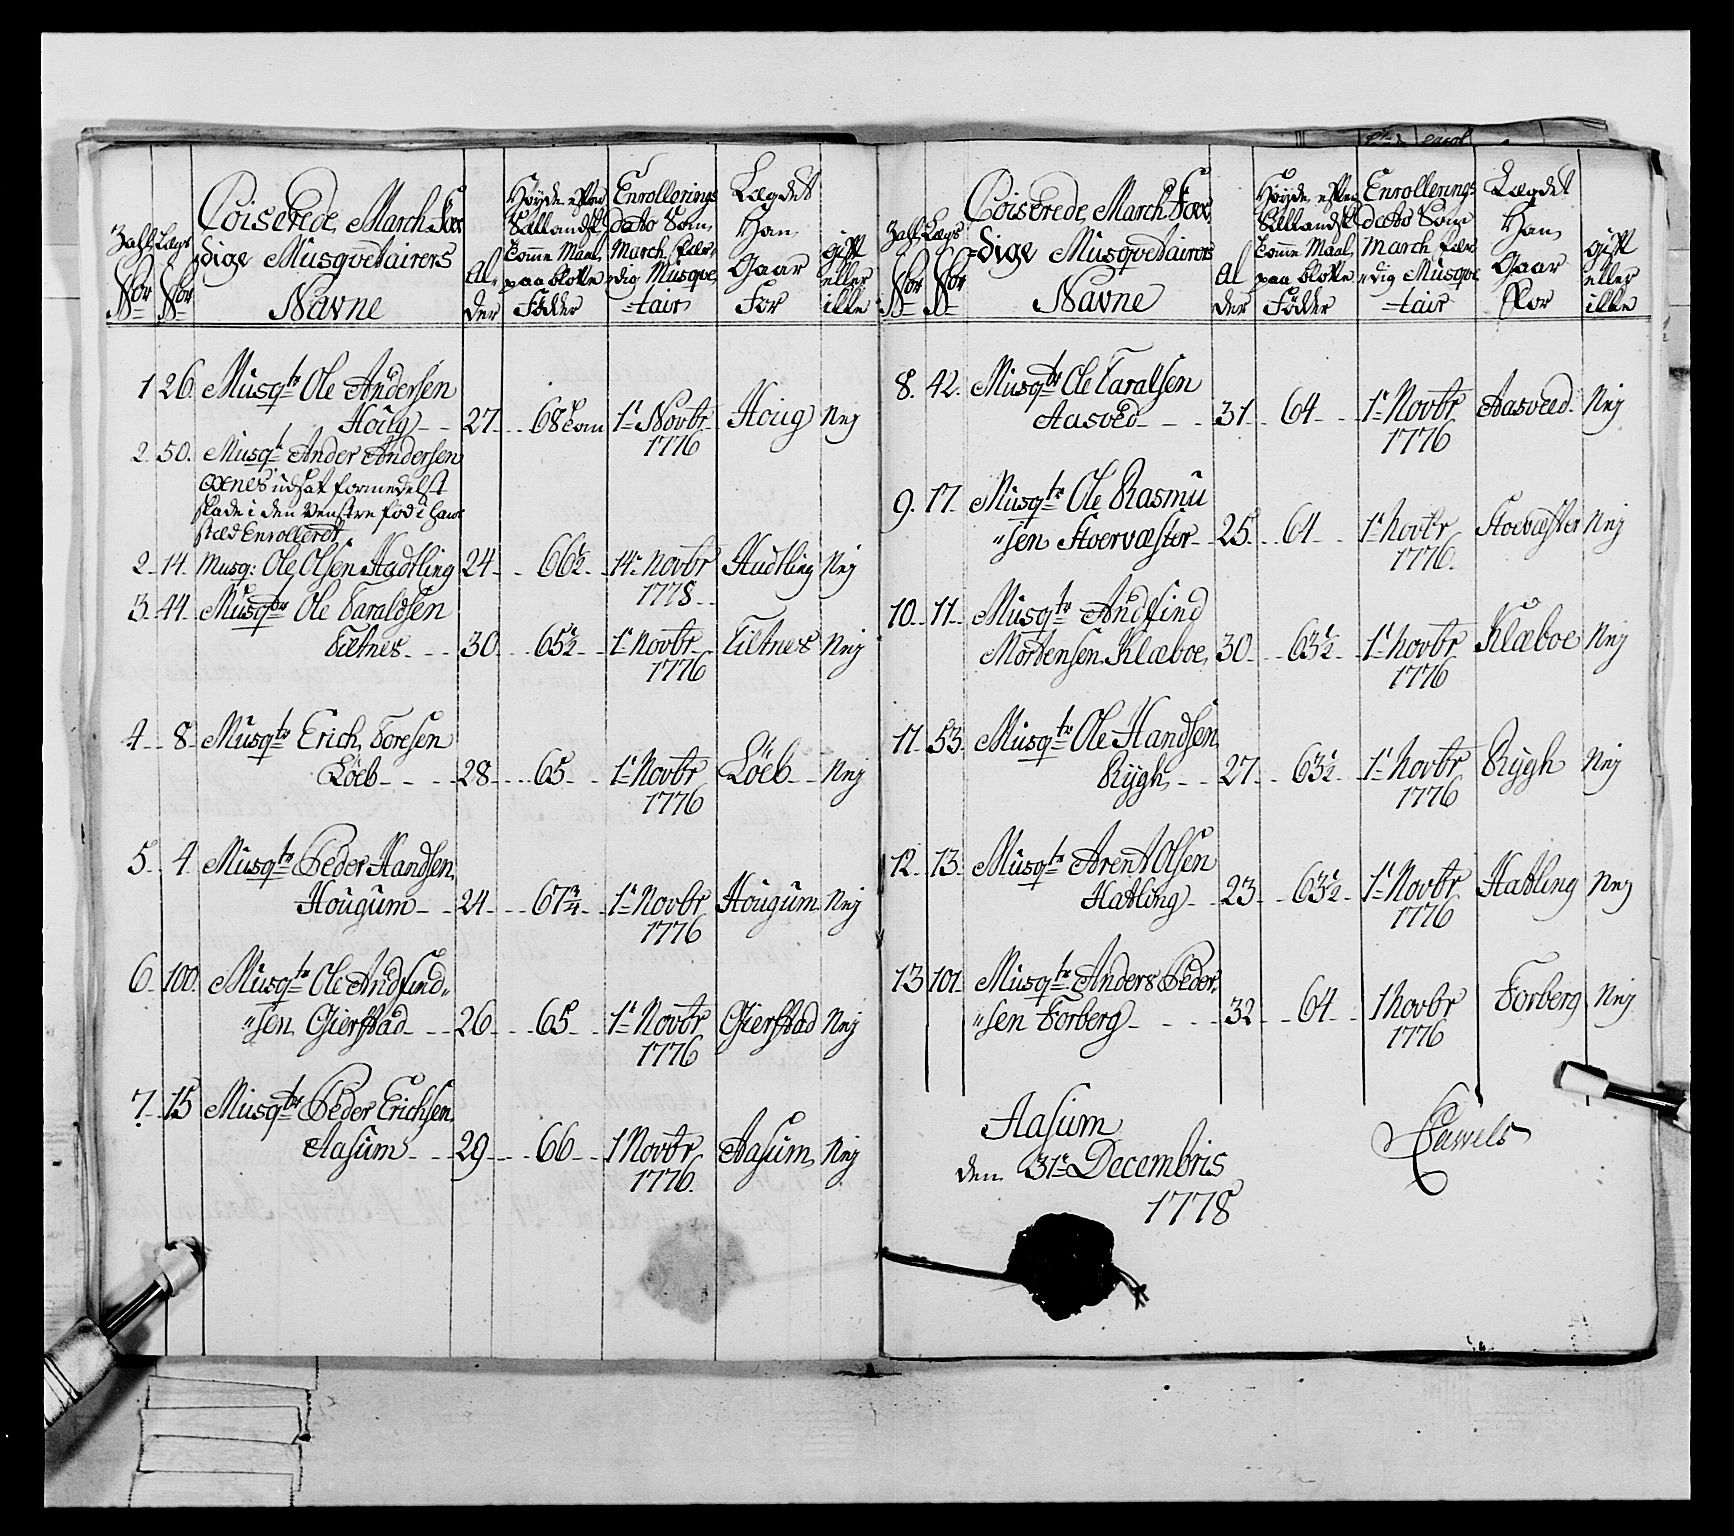 Zahl Nor
Lægs Nor
Coiserede March Fær
dige Musqvetairers
Navne
Al
der
Höyde efter
Sællandsk
Tomme Maal
paa blotte
Födder
Enrollerings
dato Som
March fær
dig Musqve
tair
Lægdet
Han
Gaar
For
gift
eller
ikke
1 26 Musqtr Ole Andersen
Houg 27 68 Tom 1te Novbr Houg Nej
1776
2 50 Musqt Ander Andersen
Oxnes udsat formedelst
skade i den Venstre fod i hans
stæd Enrolleret
2 14 Musq: Ole Olsen Hadtling 24 66½ 14te Novbr Hadtling Nej
1778
3 44 Musqtr Ole Taraldsen
Tiltnes 30 65½ 1te Novbr Tiltnes Nej
1776
4 8 Musqtr Erich Toresen
Löeb 28 65 1te Novbr Löeb Nej
1776
5 4 Musqtr Peder Handsen
Hougum 24 67¾ 1te Novbr Hougum Nej
1776
6 100 Musqtr Ole Andfind
sen Gierstad 26 65 1te Novbr Gierstad Nej
1776
7 15 Musqtr Peder Erichsen
Aasum 29 66 1 Novbr Aasum Nej
1776
Zahl Nor
Lægs Nor
Coiserede March Fær
dige Musqvetairers
Navne
Al
der
Höyde efter
Sællandsk
Tomme Maal
paa blotte
Födder
Enrollerings
dato Som
March fær
dig Musqve
tair
Lægdet
Han
Gaar
For
gift
eller
ikke
8 42 Musqtr Ole Taralsen
Aasved 31 64 1te Novbr Aasved Nej
1776
9 17 Musqtr Ole Rasmu
sen Stoervæster 25 64 1te Novbr Stoevæster Nej
1776
10 11 Musqtr Andfind
Mortensen Klæboe 30 63½ 1te Novbr Klæboe Nej
1776
11 53 Musqtr Ole Handsen
Rygh 27 63½ 1te Novbr Rygh Nej
1776
12 13 Musqtr Arent Olsen
Hatling 23 63½ 1te Novbr Hatling Nej
1776
13 101 Musqtr Anders Peder
sen Forberg 32 64 1 Novbr Forberg Nej
1776
Aasum
den 31te Decembris
1778